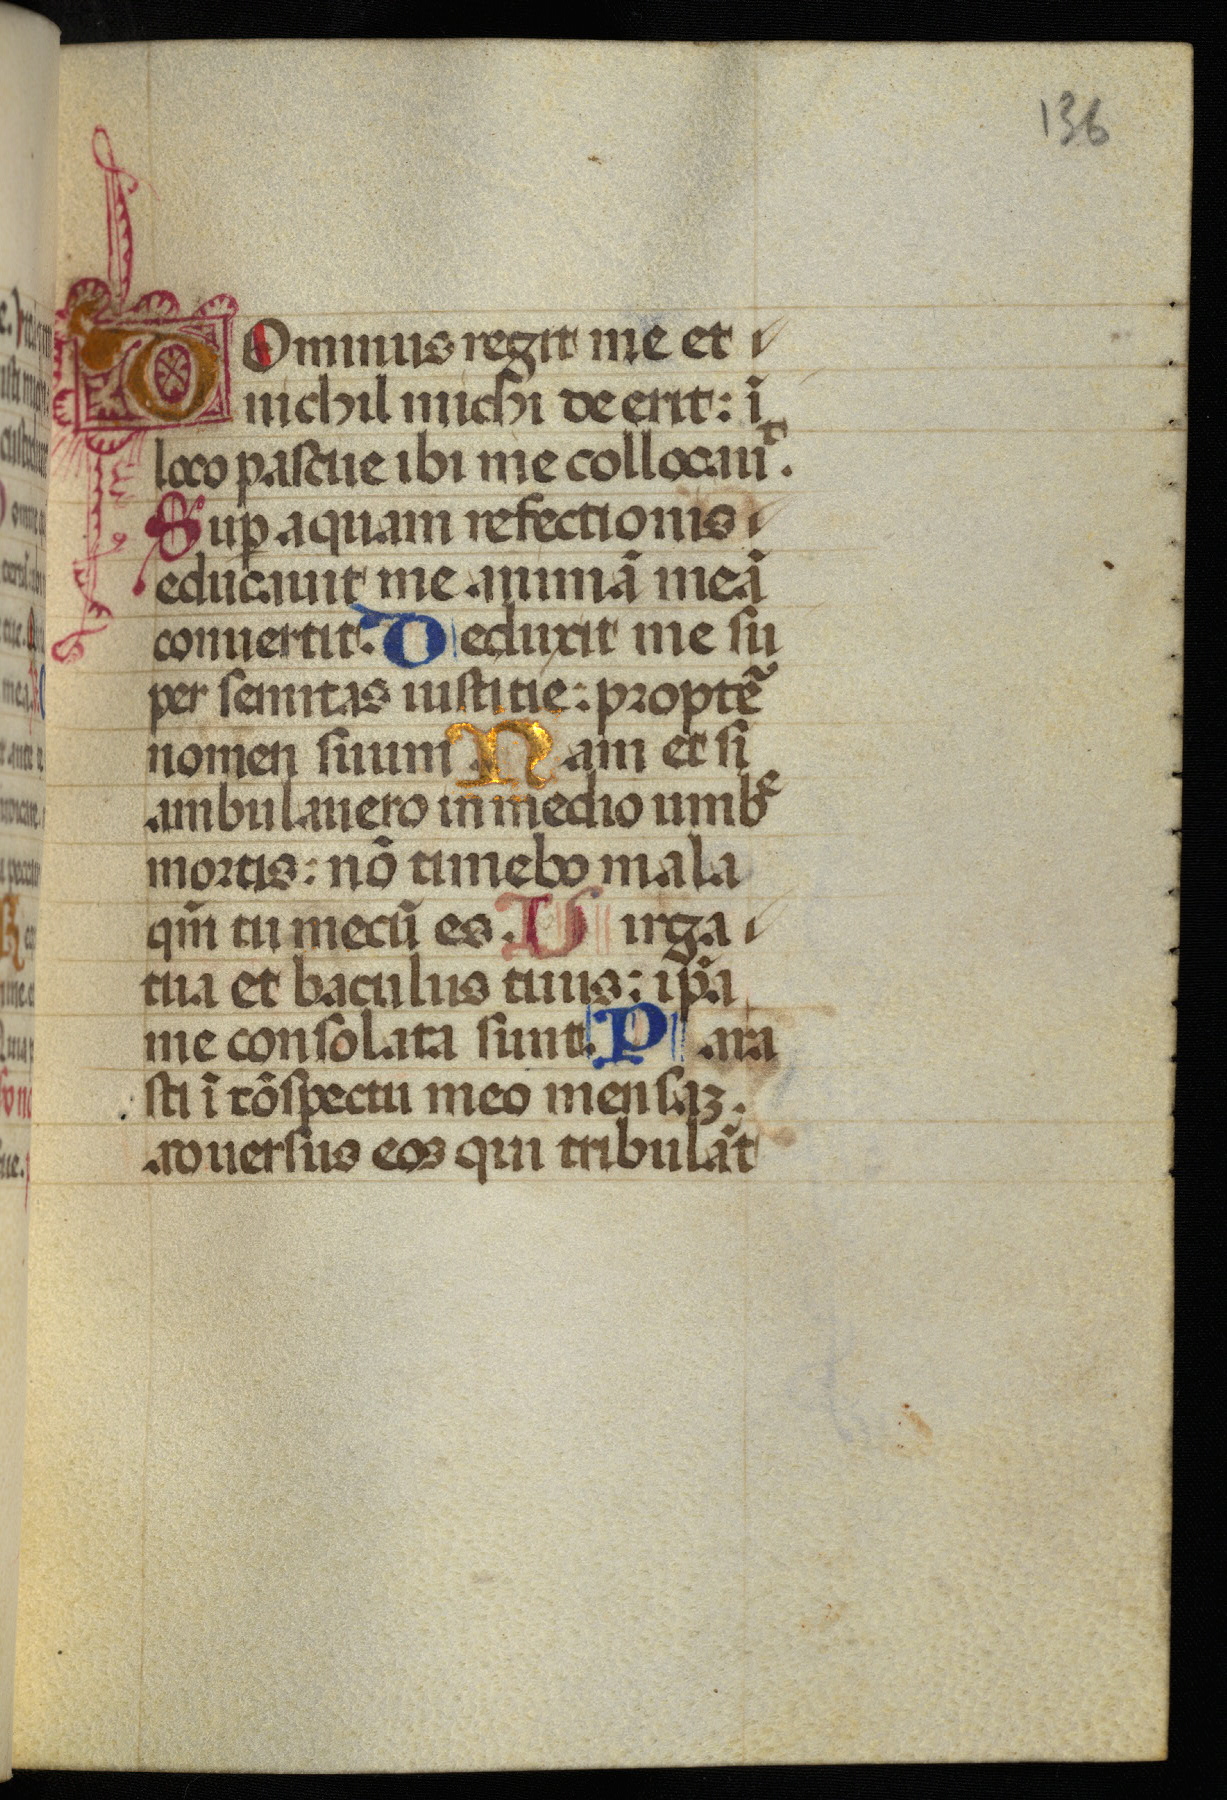 136
DOminus regit me et
nichil michi de erit: ī
loco pascue ibi me collocauᵗ.
Sup aquam refectionis
educauit me animā meā
conuertit. Deduxit me su
per semitas iustitie: proptẽ
nomen suum. Nam et si
ambulauero in medio umbᵉ
mortis: nō timebo mala
qm̄ tu mecū es. Virga
tua et baculus tuus: ip̄a
me consolata sunt. Para
sti ī cōspectu meo mensaꝫ.
aduersus eos qui tribulāt